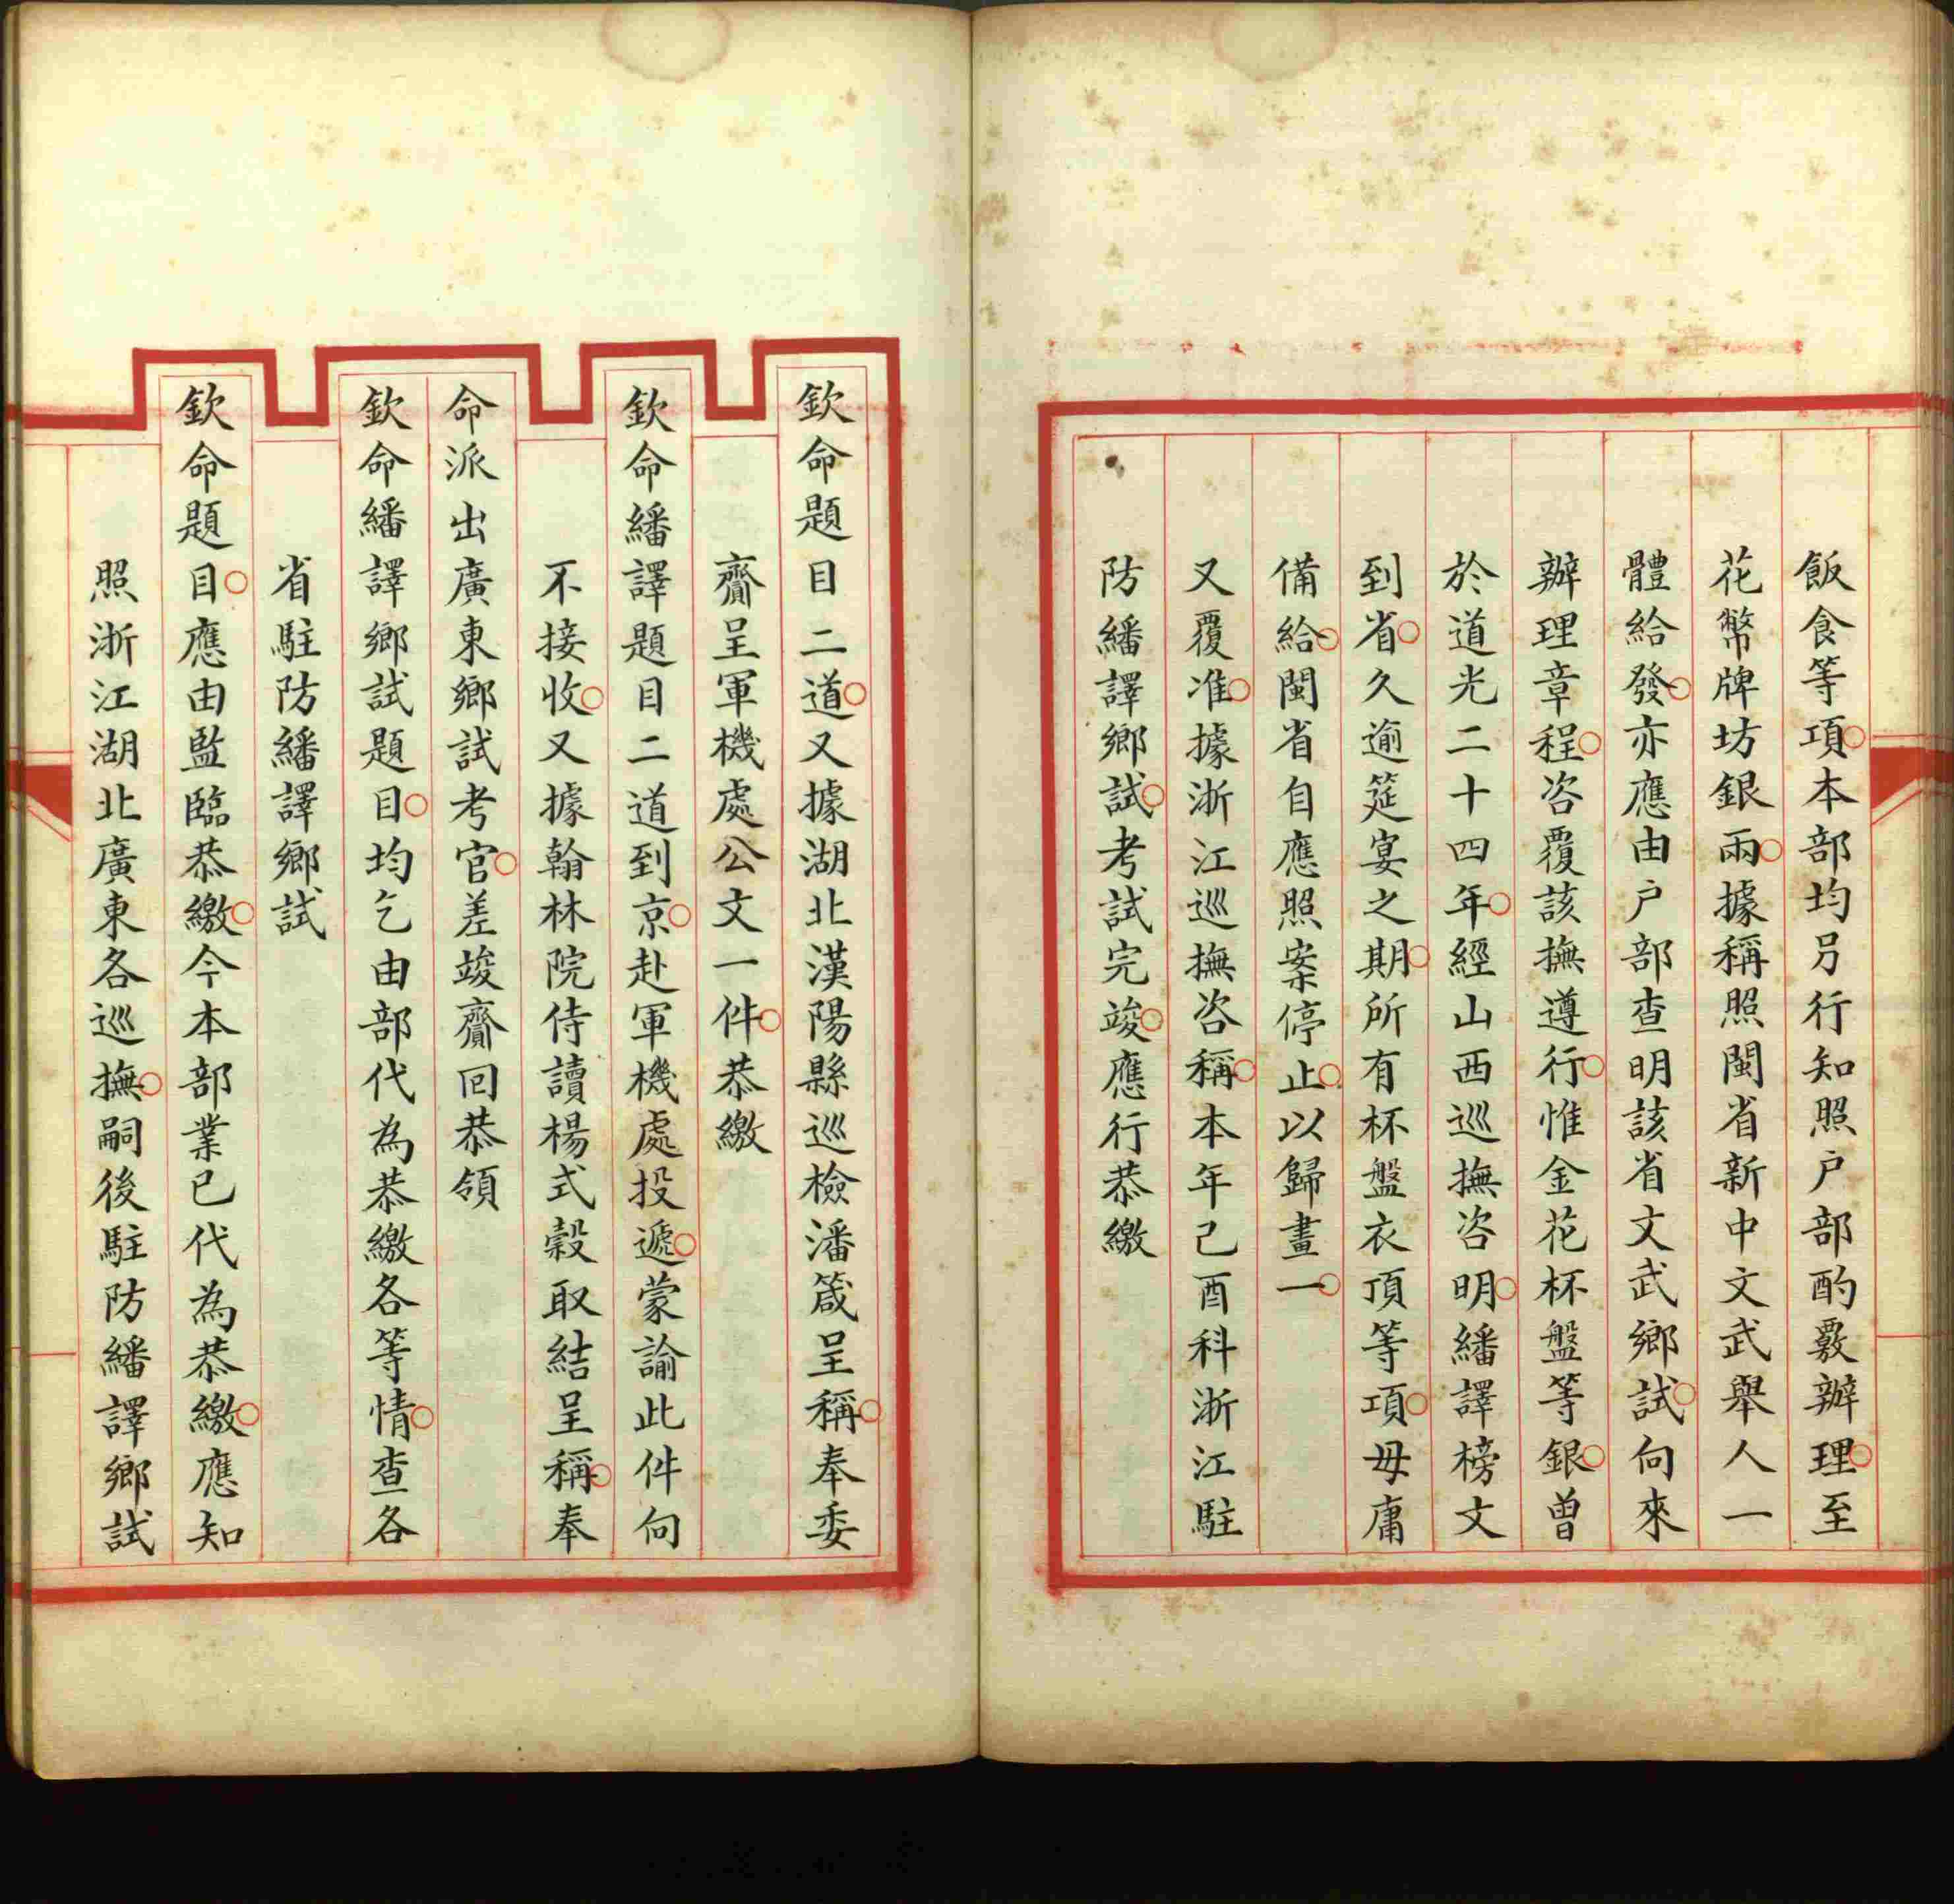 飯食等項本部均另行知照户部酌覈辦理至
花幣牌坊銀兩據稱照閩省新中文武舉人一
體給發亦應由户部查明該省文武鄉試向來
辦理章程咨覆該撫遵行惟金花杯盤等銀曾
於道光二十四年經山西巡撫咨明繙譯榜文
到省久逾筵宴之期所有杯盤衣頂等項毋庸
備給閩省自應照案停止以歸畫一
又覆准據浙江巡撫咨稱本年己酉科浙江駐
防繙譯鄉試考試完竣應行恭繳
欽命題目二道又據湖北漢陽縣巡檢潘箴呈稱奉委
齎呈軍機處公文一件恭繳
欽命繙譯題目二道到京赴軍機處投遞蒙諭此件向
不接收又據翰林院侍讀楊式穀取結呈稱奉
命派出廣東鄉試考官差竣齎回恭領
欽命繙譯鄉試題目均乞由部代為恭繳各等情查各
省駐防繙譯鄉試
欽命題目應由監臨恭繳今本部業已代為恭繳應知
照浙江湖北廣東各巡撫嗣後駐防繙譯鄉試